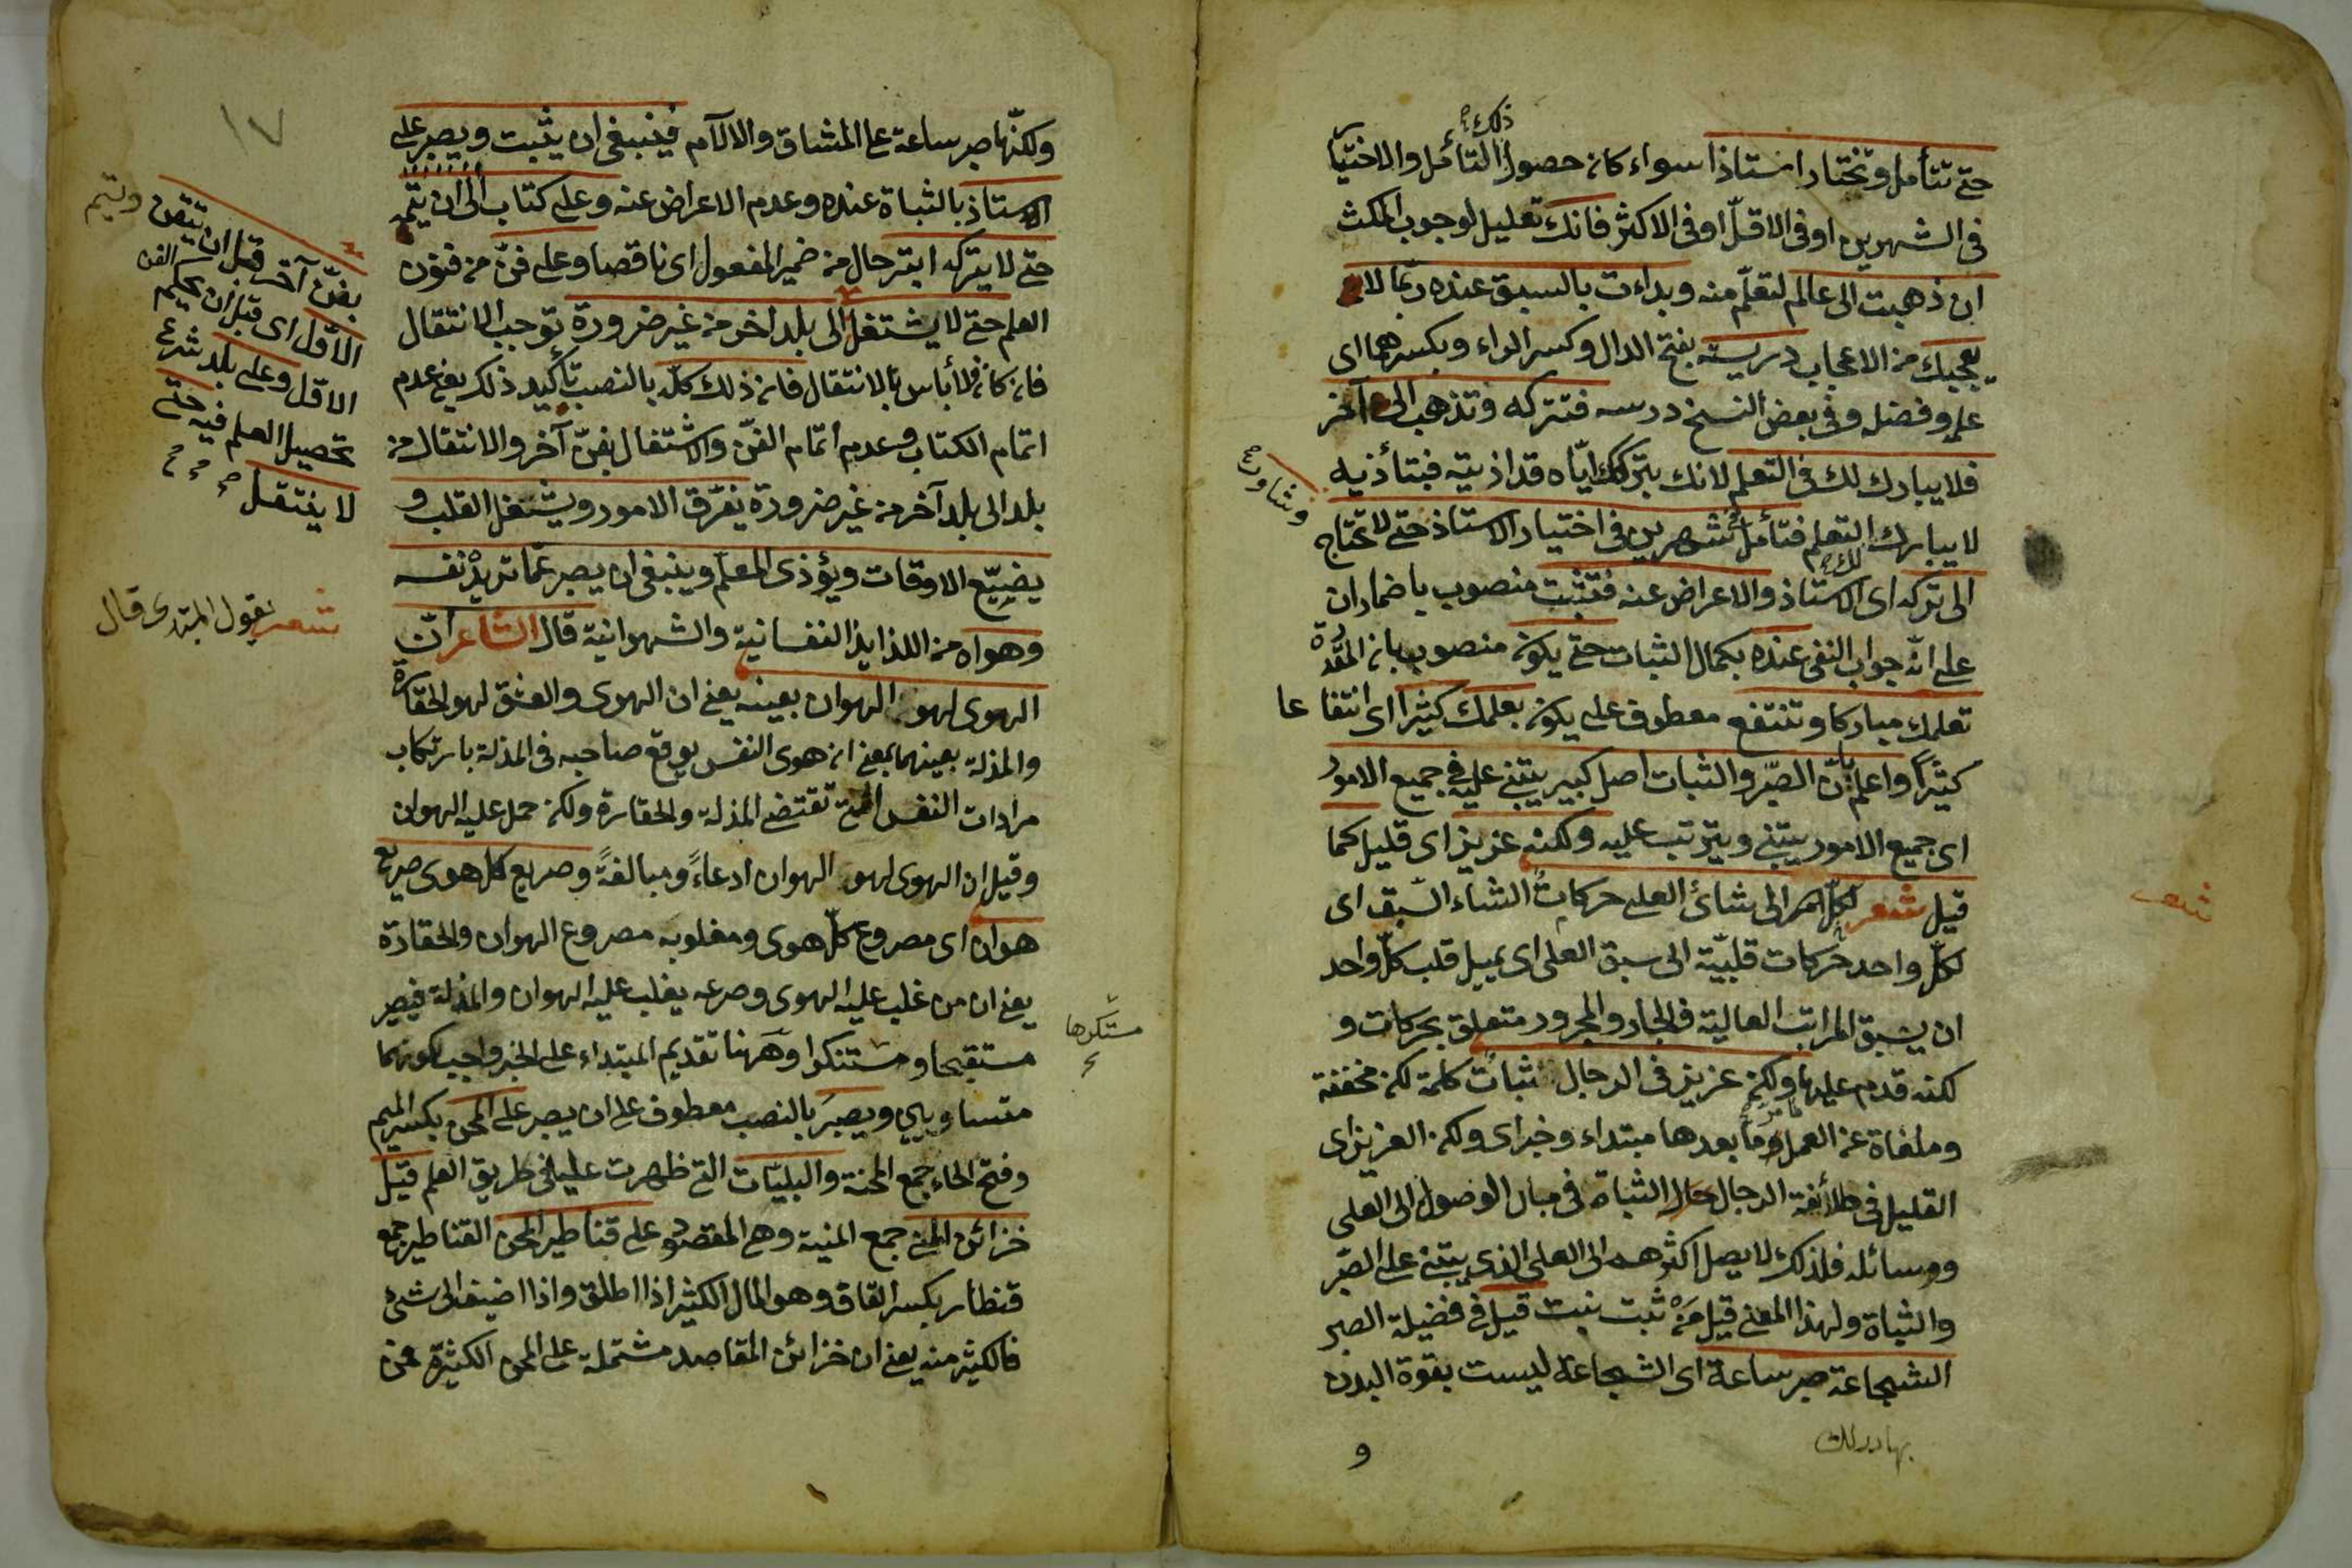 ذلك
حتى تتأمل وتختار استاذا سواء كان حصول التأمل والاختيا
فى الشهرين او فى الاقلّ او فى الاكثر فانك تعليل لوجوب المكث
ان ذهبت الى عالم لتعلّم منه وبداءت بالسبق عنده ربّما لا
يعجبك من الاعجاب دريسته بفتح الدال وكسر الراء وبكسرهما اى
علم وفضله وفى بعض النسخ درسه فتتركه وتذهب الى آخر
فلا يبارك لك فى التعلم لانك بتركك ايّاه قد اذيته فبتأذيه
وتشاور
لا يبارك التعلم فتأمل شهرين فى اختيار الاستاذ حتى لا تحتاج
لك
الى تركه اى الاستاذ والاعراض عنه فتثبت منصوب باضمار ان
على انّه جواب النفى عنده بكمال الثبات حتى يكون منصوب بان المقدرة
تعلمك مباركا وتنتفع معطوف على يكون بعلمك كثيرا اى انتفاعا
كثيرًا واعلم بانّ الصّبر والثبات اصل كبير يبتنى عليه فى جميع الامور
اى جميع الامور يبتنى ويترتب عليه ولكنه عزيز اى قليل كما
قيل شعر لكلّ الى شائ العلى حركاتٌ الشاء السّبق اى
شعر
لكلّ واحد حركات قلبيّة الى سبق العلى اى يميل قلب كلّ واحد
ان يسبق المراتب العالية فالجار والمجرور متعلق بحركات و
لكنه قدم عليها ولكن عزيز فى الرجال ثباتٌ كلمة لكن مخففة
وملغاة عن العمل وما بعدها مبتداء وخبر اى ولكن العزيز اى
القليل فى طائفة الرجال حال الثباة فى مبار الوصول الى العلى
ووسائله فلذلك لا يصل اكثرهم الى العلى الذى يبتنى على الصّبر
والثباة ولهذا المعنى قيل مَنْ ثبت نبت قيل فى فضيلة الصبر
الشجاعة صبر ساعة اى الشجاعة ليست بقوة البدن
و
١٧
ولكنّها صبر ساعة على المشاق والالآم فينبغى ان يثبت ويصبر على
الاستاذ بالثباة عنده وعدم الاعراض عنه وعلى كتاب الى ان يتمه
حتى لا يتركه ابتر حال من ضمير المفعول اى ناقصا وعلى فنّ من فنون
العلم حتى لا يشتغل الى بلد اخر من غير ضرورة توجب الانتقال
بفنّ آخر قبل ان يتقن ويتيم
الاوّل اى قبل ان يحكم الفن
الاوّل وعلى بلد شرع
تحصيل العلم فيه حتى
لا ينتقل
فان كان فلا بأس بالانتقال فان ذلك كلّه بالنصب تأكيد ذلك يعنى عدم
اتمام الكتاب وعدم اتمام الفنّ والاشتغال بفنّ آخر والانتقال من
بلد الى بلد آخر من غير ضرورة يفرّق الامور ويشغل القلب و
يضيّع الاوقات ويؤذى المعلّم وينبغى ان يصبر عمّا تريدْ نفسه
وهواه من اللذايذ النفسانية والشهوانية قال الشاعر انّ
شعر يقول المبتدى قال
الهوى لهو الهوان بعينه يعنى ان الهوى والعشق لهو الحقارة
والمذلة بعينهما بمعنى ان هوى النفس يوقع صاحبه فى المذلة بارتكاب
مرادات النفس التى تقتضى المذلة والحقارة ولكن حمل عليه الهوان
وقيل ان الهوى لهو الهوان ادعاءً ومبالغةً وصريع كل هوى صريع
هوان اى مصروع كلّ هوى ومغلوبه مصروع الهوان والحقارة
يعنى ان من غلب عليه الهوى وصرعه يغلب عليه الهوان والمذلة فيصير
مستقبحا ومستنكرا وههنا تقديم المبتداء على الخبر واجب لكونهما
مستكرها
متساويين ويصبرَ بالنصب معطوف على ان يصبر على المحن بكسر الميم
وفتح الحاء جمع المحنة والبليّات التى ظهرت عليه فى طريق العلم قيل
خزائن المنى جمع المنية وهى المقصود على قناطير المحن القناطير جمع
قنطار بكسر القاف وهو المال الكثير اذا اطلق واذا اضيف الى شئ
فالكثير منه يعنى ان خزائن المقاصد مشتملة على المحن الكثيرة فمن